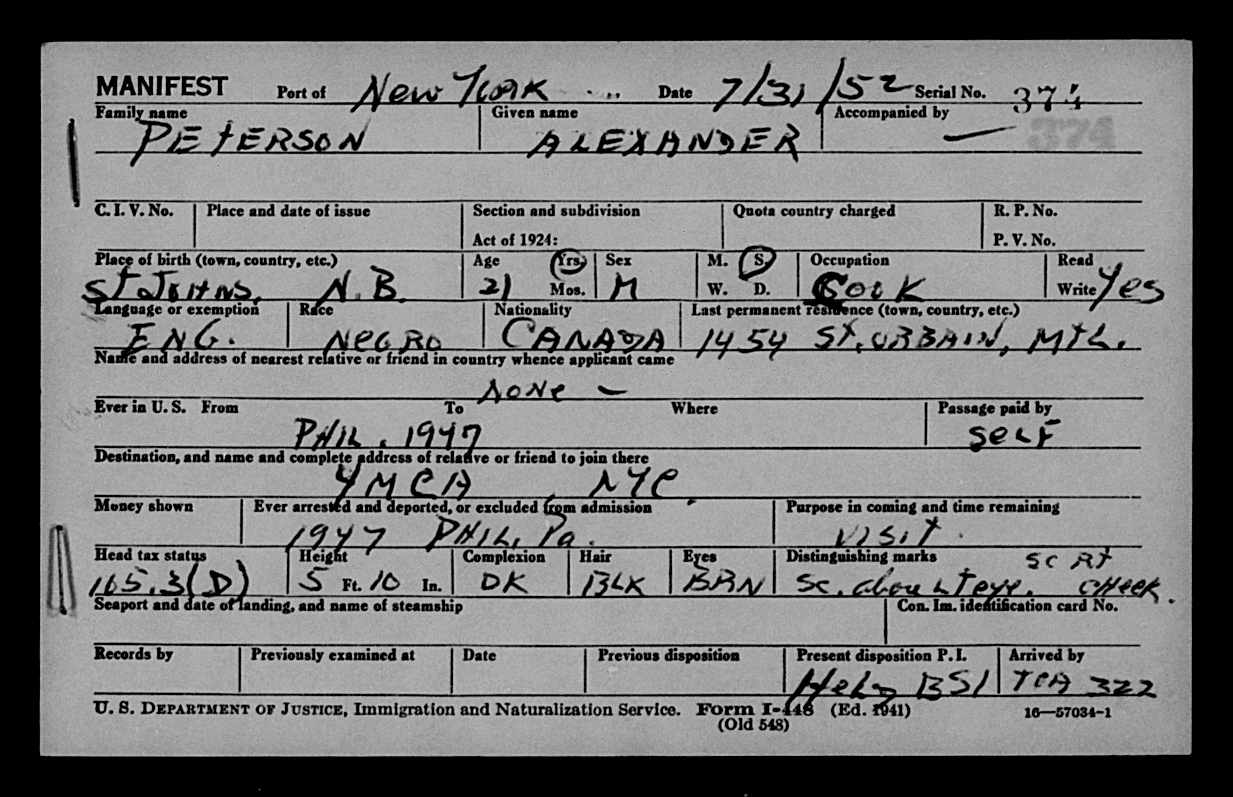 MANIFEST Port of New York Date 7/31/52 Serial No. 374
Family name Given name Accompanied by
PETERSON ALEXANDER — 374
C. I. V. No. Place and date of issue Section and subdivision Quota country charged R. P. No.
Act of 1924: P. V. No.
Place of birth (town, country, etc.) Age Yrs. Sex M. S. Occupation Read
St Johns, N.B. 21 Mos. M W. D. Cook Write Yes
Language or exemption Race Nationality Last permanent residence (town, country, etc.)
ENG. NEGRO CANADA 1454 St. URBAIN, MTL.
Name and address of nearest relative or friend in country whence applicant came
NONE —
Ever in U. S. From To Where Passage paid by
PHIL. 1947 SELF
Destination, and name and complete address of relative or friend to join there
YMCA, NYC.
Money shown Ever arrested and deported, or excluded from admission Purpose in coming and time remaining
1947 PHIL, Pa. VISIT.
Head tax status Height Complexion Hair Eyes Distinguishing marks SC Rt
105.3(D) 5 Ft. 10 In. DK BLK BRN Sc. above Lt eye. CHEEK.
Seaport and date of landing, and name of steamship Con. Im. identification card No.
Records by Previously examined at Date Previous disposition Present disposition P. I. Arrived by
Held BSI TCA 322
U. S. DEPARTMENT OF JUSTICE, Immigration and Naturalization Service. Form I-448 (Ed. 1941) 16—57034-1
(Old 548)